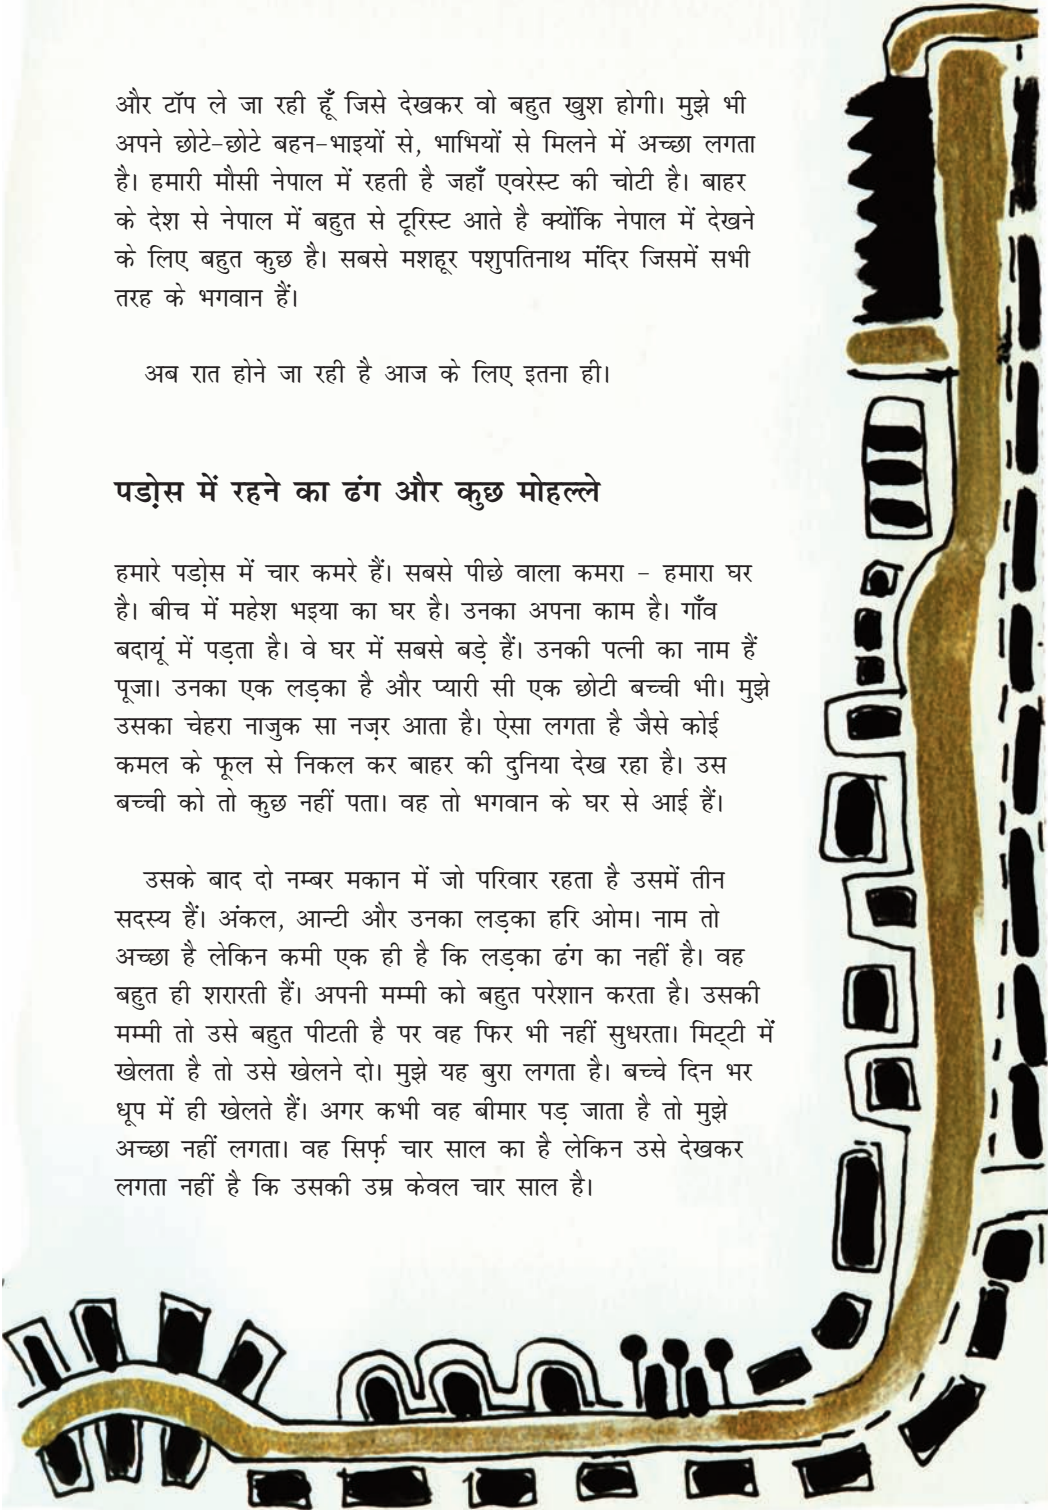 और टॉप ले जा रही हूँ जिसे देखकर वो बहुत खुश होगी। मुझे भी
अपने छोटे-छोटे बहन-भाइयों से, भाभियों से मिलने में अच्छा लगता
है। हमारी मौसी नेपाल में रहती है जहाँ एवरेस्ट की चोटी है। बाहर
के देश से नेपाल में बहुत से टूरिस्ट आते है क्योंकि नेपाल में देखने
के लिए बहुत कुछ है। सबसे मशहूर पशुपतिनाथ मंदिर जिसमें सभी
तरह के भगवान हैं।
अब रात होने जा रही है आज के लिए इतना ही।
पडो़स में रहने का ढंग और कुछ मोहल्ले
हमारे पडो़स में चार कमरे हैं। सबसे पीछे वाला कमरा – हमारा घर
है। बीच में महेश भइया का घर है। उनका अपना काम है। गाँव
बदायूं में पड़ता है। वे घर में सबसे बड़े हैं। उनकी पत्नी का नाम हैं
पूजा। उनका एक लड़का है और प्यारी सी एक छोटी बच्ची भी। मुझे
उसका चेहरा नाजुक सा नज़र आता है। ऐसा लगता है जैसे कोई
कमल के फूल से निकल कर बाहर की दुनिया देख रहा है। उस
बच्ची को तो कुछ नहीं पता। वह तो भगवान के घर से आई हैं।
उसके बाद दो नम्बर मकान में जो परिवार रहता है उसमें तीन
सदस्य हैं। अंकल, आन्टी और उनका लड़का हरि ओम। नाम तो
अच्छा है लेकिन कमी एक ही है कि लड़का ढंग का नहीं है। वह
बहुत ही शरारती हैं। अपनी मम्मी को बहुत परेशान करता है। उसकी
मम्मी तो उसे बहुत पीटती है पर वह फिर भी नहीं सुधरता। मिट्टी में
खेलता है तो उसे खेलने दो। मुझे यह बुरा लगता है। बच्चे दिन भर
धूप में ही खेलते हैं। अगर कभी वह बीमार पड़ जाता है तो मुझे
अच्छा नहीं लगता। वह सिर्फ़ चार साल का है लेकिन उसे देखकर
लगता नहीं है कि उसकी उम्र केवल चार साल है।